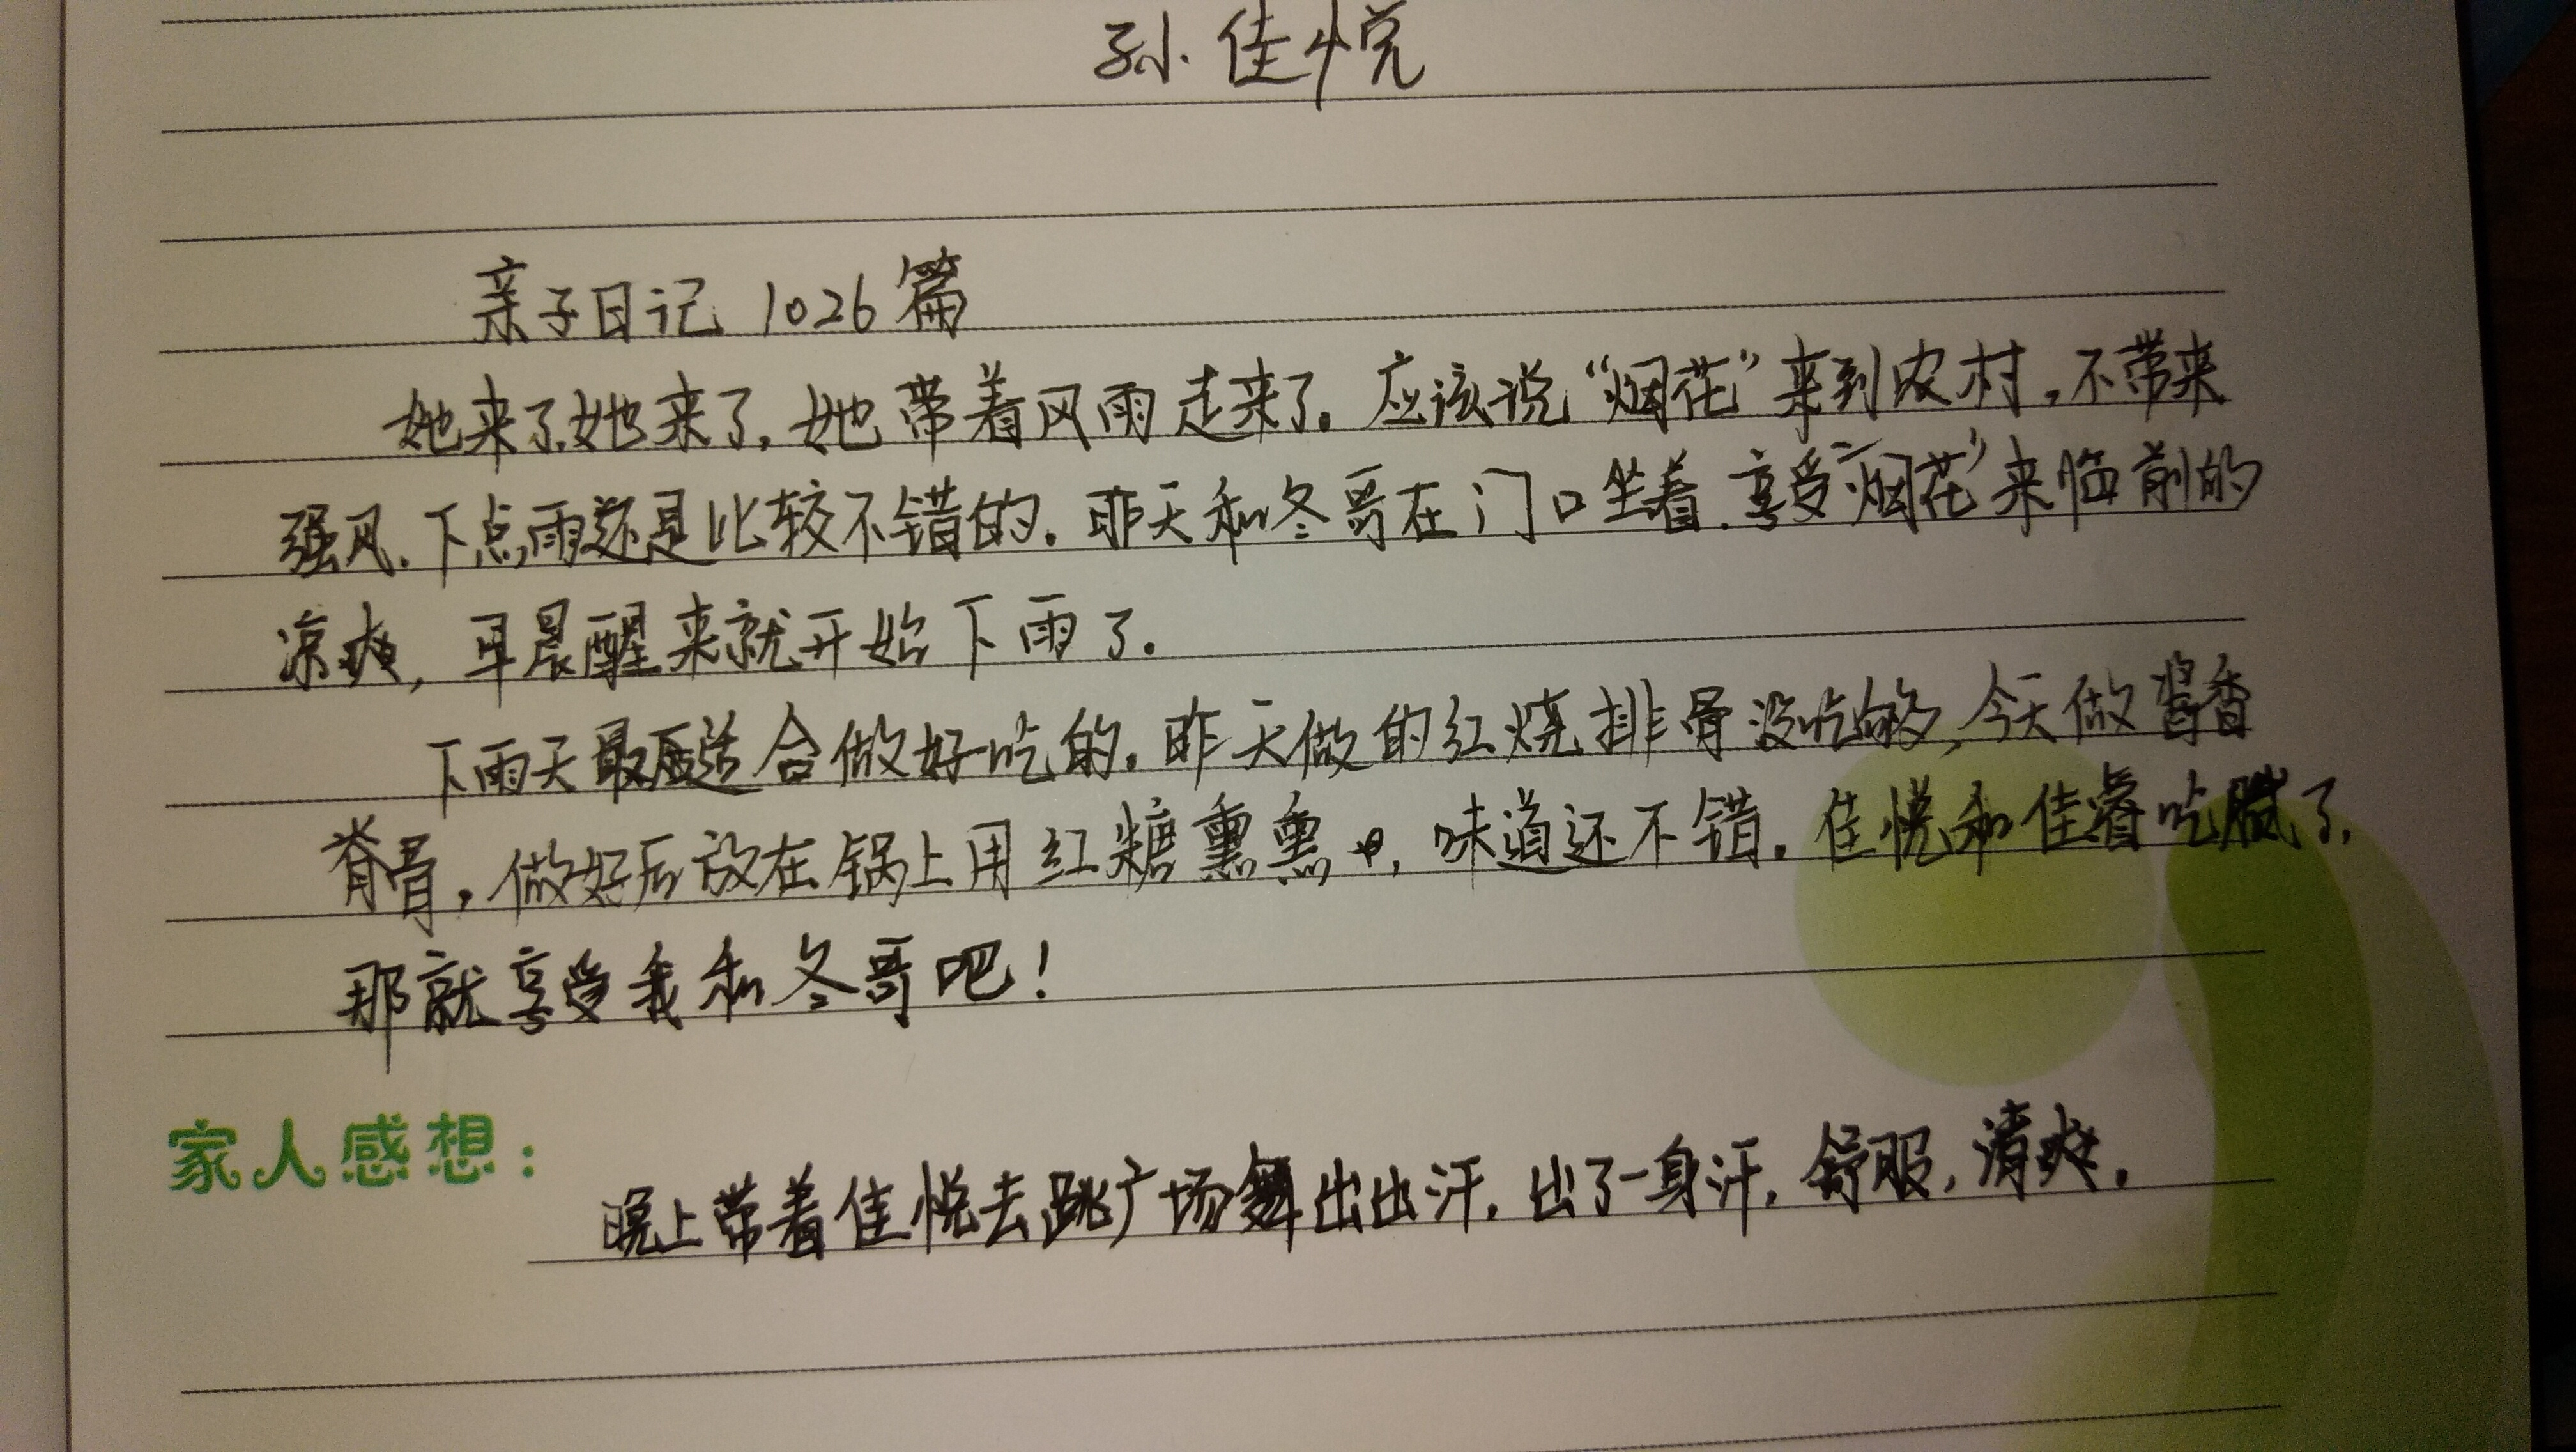 孙佳悦
亲子日记 1026篇
她来了,她来了,她带着风雨走来了。应该说“烟花”来到农村,不带来
强风,下点雨还是比较不错的。昨天和冬哥在门口坐着,享受“烟花”来临前的
凉爽,早晨醒来就开始下雨了。
下雨天最适合做好吃的。昨天做的红烧排骨没吃够,今天做酱香
脊骨,做好后放在锅上用红糖熏熏,味道还不错。佳悦和佳睿吃腻了,
那就享受我和冬哥吧!
家人感想:
晚上带着佳悦去跳广场舞出出汗,出了一身汗,舒服,清爽。